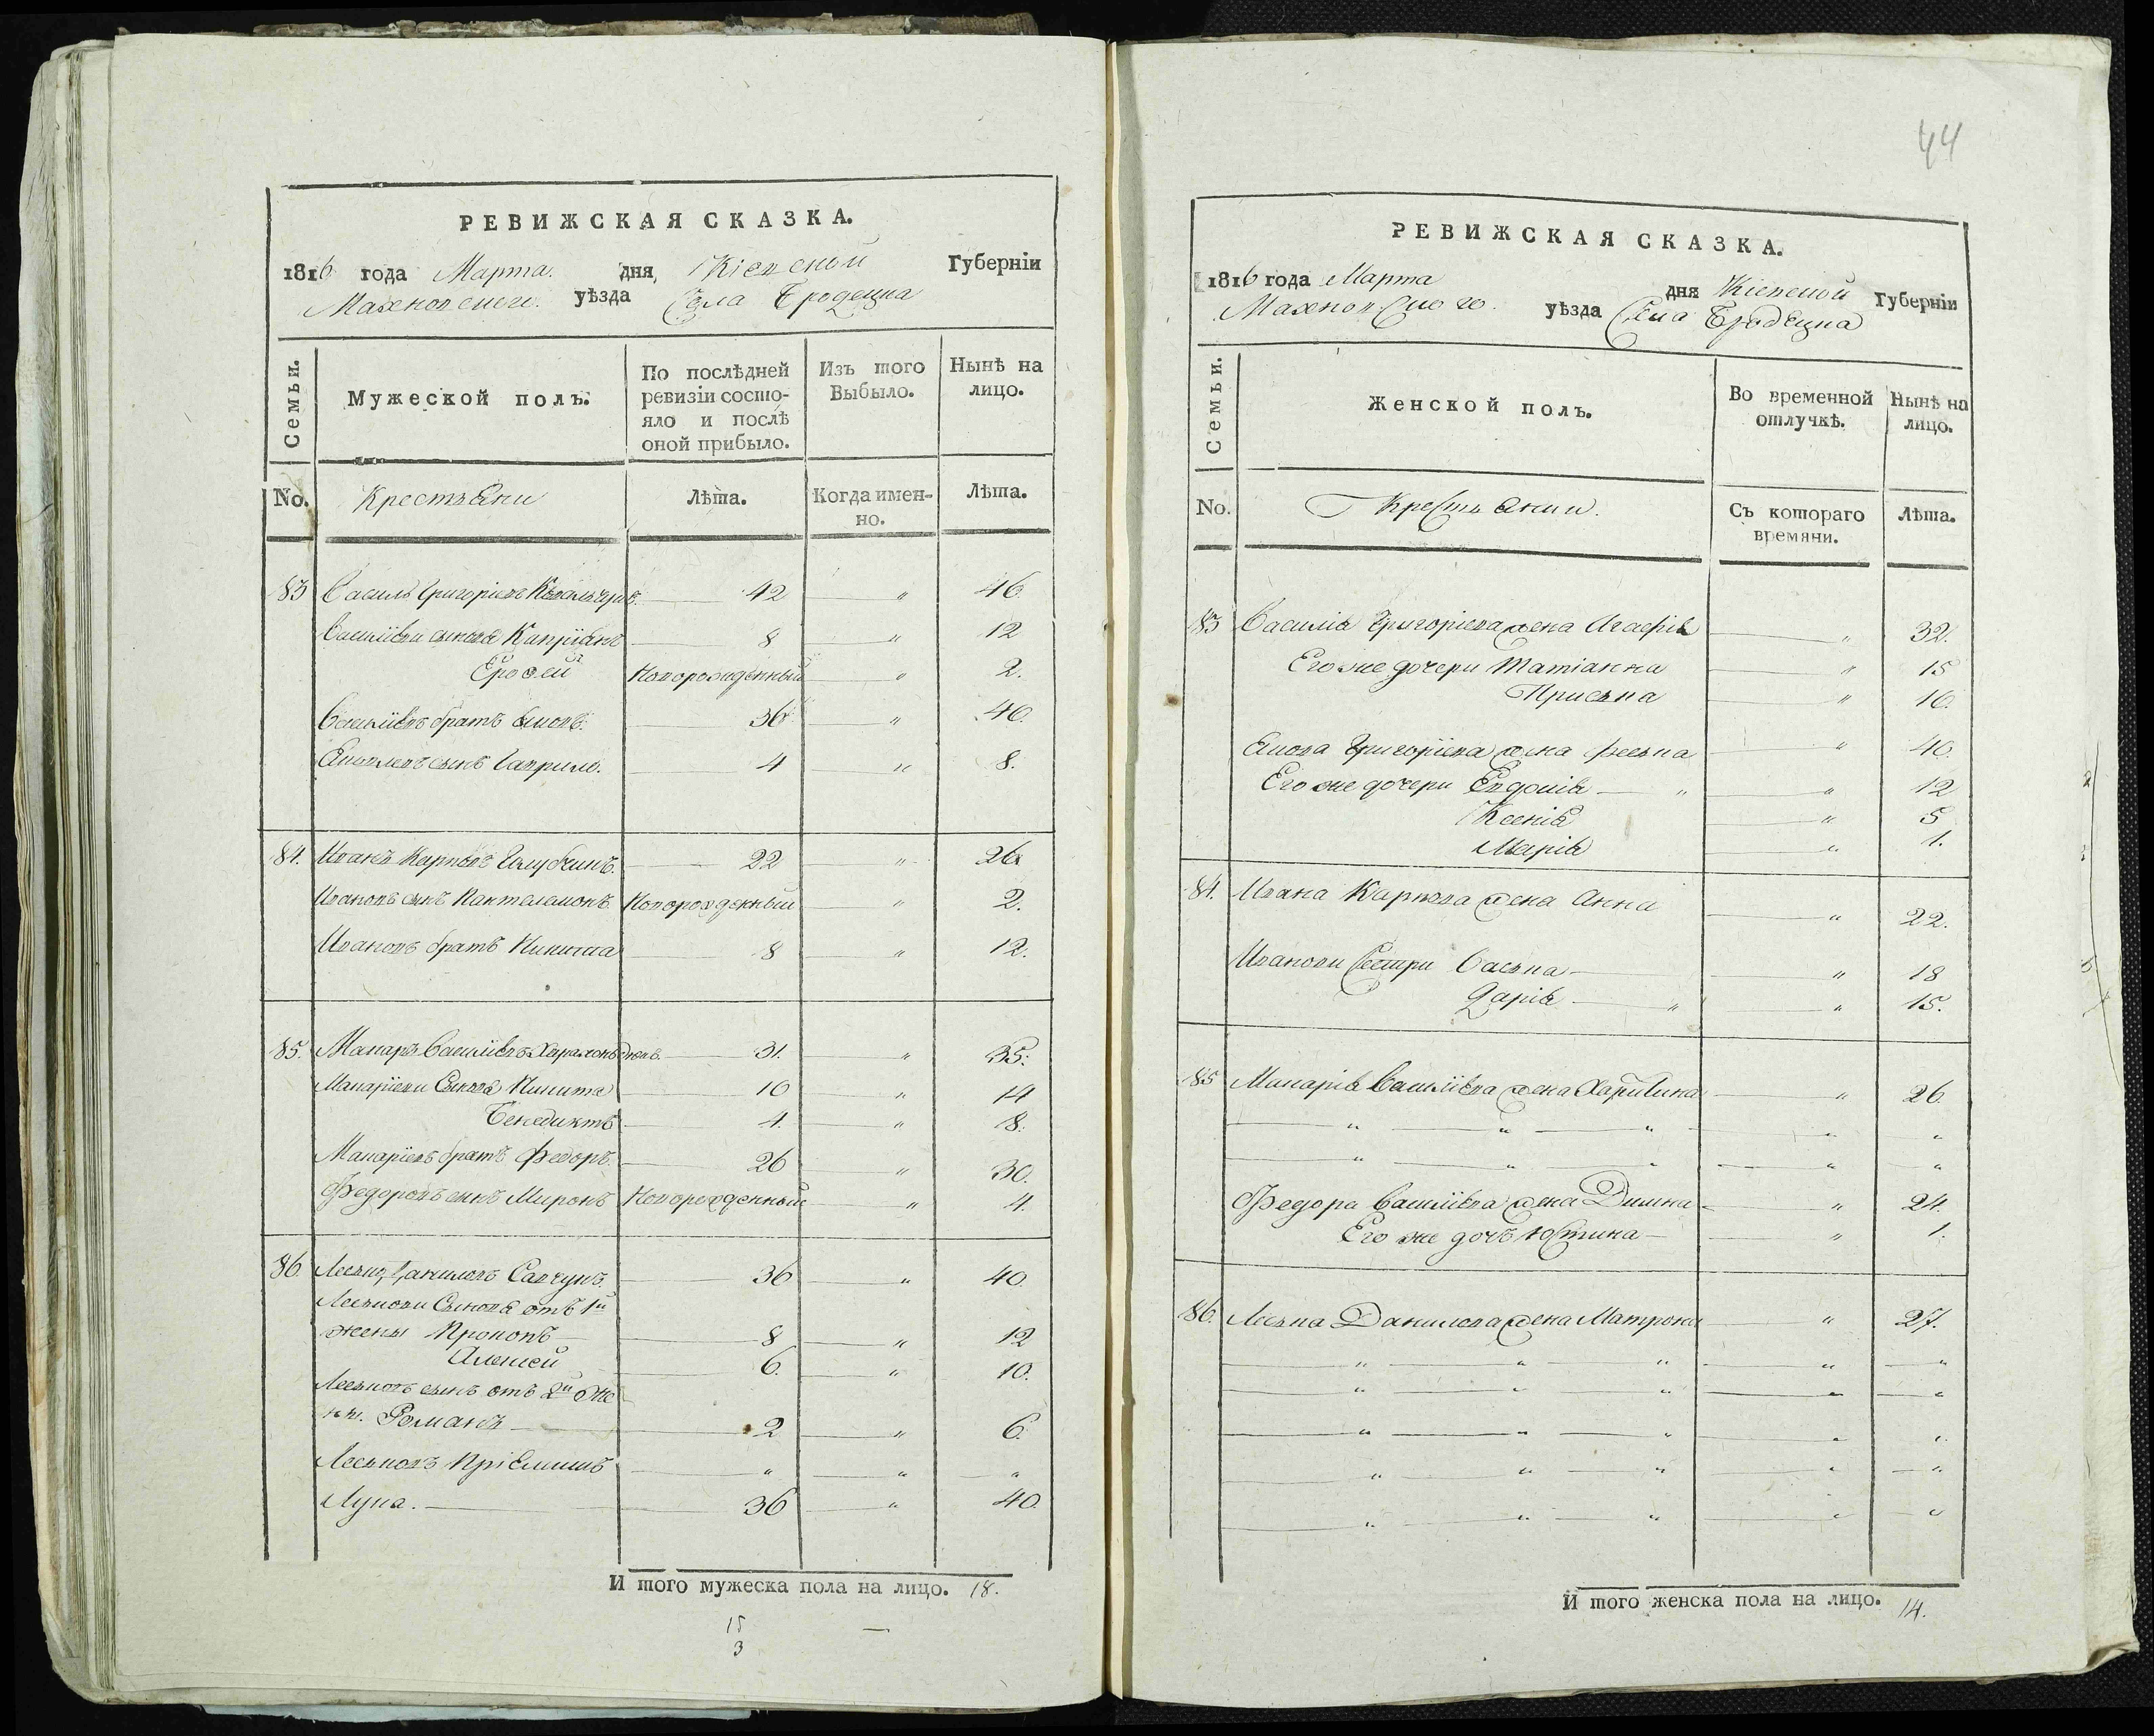 РЕВИЖСКАЯ СКАЗКА.
1816 года Марта. дня Кіевской Губерніи
Махновскаго уѣзда Села Бродецка
Семьи.
Мужеской полъ.
По послѣдней ревизіи состо-
яло и послѣ
оной прибыло.
Изъ того Выбыло.
Нынѣ на лицо.
No. Крестьяни Лѣта. Когда имен-
но. Лѣта.
83 Василь Григоріевъ Ковальчукъ. 42 " 46.
Василіеви сынова Капріянъ 8 " 12
Ерофей Новорожденный " 2.
Василіевъ братъ 36 " 40.
сынъ Гаврило. 4 " 8.
84. Иванъ Карповъ 22 " 26
Ивановъ сынъ Пантелемонъ Новорожденный " 2.
Ивановъ братъ Никита 8 " 12.
85. Макаръ Василіевъ 31. " 35.
Макаріеви Сынова Никита 10 " 14
Бенедиктъ 4. " 8.
Макаріевъ братъ Федоръ 26 " 30.
Федоровъ сынъ Миронъ Новорожденный " 4.
86. Леськo Даниловъ Савчукъ. 36 " 40
Леськови Сынова отъ 1й
жены Прокопъ 8 " 12
Алексей 6. " 10.
Леськовъ сынъ отъ 2й Же
ны. Романъ 2 " 6.
Леськовъ Пріемишъ " " "
Лука. 36 " 40.
И того мужеска пола на лицо. 18.
15
3
44
РЕВИЖСКАЯ СКАЗКА.
1816 года Марта дня Кіевской Губерніи
Махновскаго. уѣзда Села Бродецка
Семьи.
Женской полъ.
Во временной отлучкѣ.
Нынѣ на лицо.
No. Крестьянки. Съ котораго времяни. Лѣта.
83 Василія Григоріева жена Агафія " 32.
Его же дочери Татіанна " 15
Приська " 10.
Григоріева жена Феська " 40.
Его же дочери Евдокія " " 12
Ксенія " 5
Марія " 1.
84. Ивана Карпова жена Анна " 22.
Иванови Сестри Васька " 18
Дарія " " 15.
85 Макарія Василіева жена Харитина " 26.
" " " " "
" " " " "
Федора Василіева жена Димна " 24.
Его же дочь Юстина " 1.
86. Леська Данилова жена Матрона " 27.
" " " " "
" " " " "
" " " " "
" " " " "
" " " " "
И того женска пола на лицо. 14.